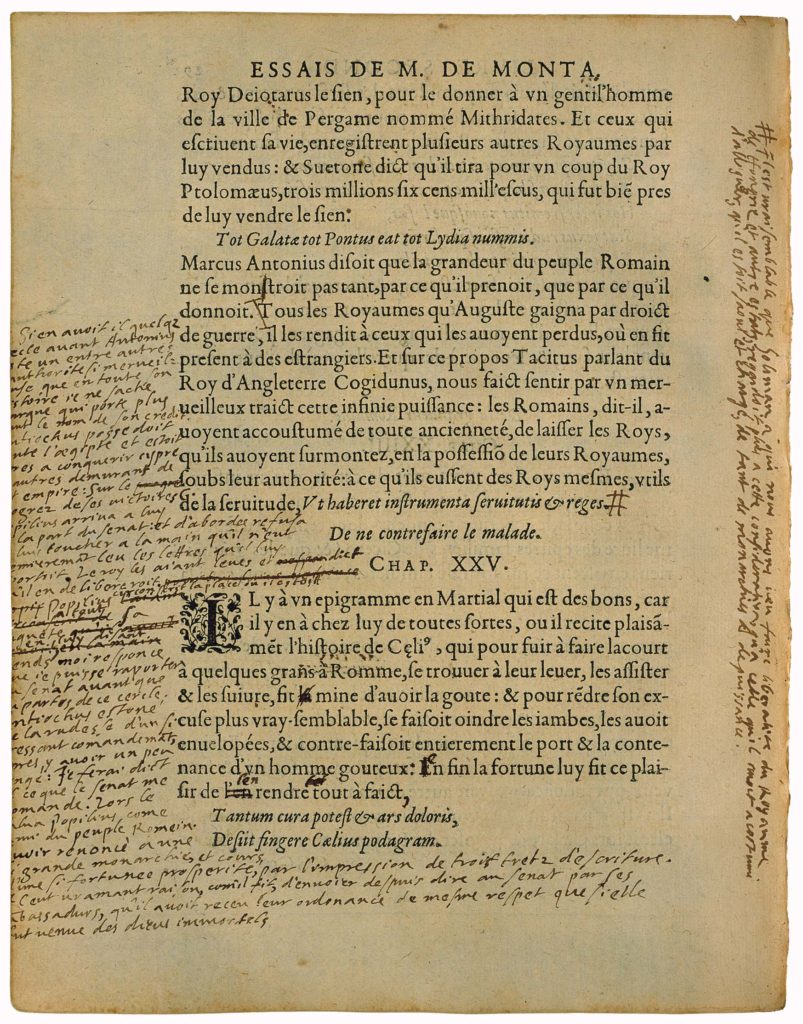 ESSAIS DE M. DE MONTA.
Roy Deiotarus le sien, pour le donner à vn gentil'homme
de la ville de Pergame nommé Mithridates. Et ceux qui
esctiuent sa vie, enregistrent plusieurs autres Royaumes par
luy vendus: & Suetone dict qu'il tira pour vn coup du Roy
Ptolomæus, trois millions six cens mill'escus, qui fut biē pres
de luy vendre le sien:
Tot Galatæ tot Pontus eat tot Lydia nummis.
Marcus Antonius disoit que la grandeur du peuple Romain
ne se monstroit pas tant, par ce qu'il prenoit, que par ce qu'il
donnoit. Tous les Royaumes qu'Auguste gaigna par droict
de guerre, il les rendit à ceux qui les auoyent perdus, où en fit
present à des estrangiers. Et sur ce propos Tacitus parlant du
Roy d'Angleterre Cogidunus, nous faict sentir par vn mer-
ueilleux traict cette infinie puissance: les Romains, dit-il, a-
uoyent accoustumé de toute ancienneté, de laisser les Roys,
qu'ils auoyent surmontez, en la possessiō de leurs Royaumes,
soubs leur authorité: à ce qu'ils eussent des Roys mesmes, vtils
de la seruitude, Vt haberet instrumenta seruitutis & reges. #
De ne contrefaire le malade.
CHAP. XXV.
IL y à vn epigramme en Martial qui est des bons, car
il y en à chez luy de toutes sortes, ou il recite plaisā-
mēt l'histoire de Cęliꝰ, qui pour fuir à faire la court
à quelques grans à Romme, se trouuer à leur leuer, les assister
& les suiure, fit mine d'auoir la goute: & pour rēdre son ex-
cuse plus vray-semblable, se faisoit oindre les iambes, les auoit
enuelopées, & contre-faisoit entierement le port & la conte-
nance d'vn homme gouteux: En fin la fortune luy fit ce plai-
sir de l'en rendre tout à faict,
Tantum cura potest & ars doloris,
Desiit fingere Cælius podagram.
Si en avoit il quelqz
cle avant Antonius
te un entre autres
authorite si merveil
se que en toute son
stoire ie ne sache
arque qui porte plus
ut le nom de son credit
tiochus possedoit
ute l'aegipte et estoit
res a conquerir cypre
autres demurant de
t empire: Sur le
ogrez de ses victoires
pilius arriva a luy
la part du senat: et d'abordee refusa
luy toucher a la main qu'il n'eut
mieremāt leu les lettres qu'il luy
portoit. Le roy les aiant leues et dict
il en delibereroit
Popilius circonscrit la place ou il estoit
sa
guete
ends moi responce
ue ie puisse raporter
senat avant que
partes de ce cercle.
ntiochus estoné
la rudesse d'un si
ressant comandemāt
pres y avoir un peu
nge: Je ferai dict
l ce que le senat me
omande. Lors le
alua Popilius, come
ami du peuple Romein
voir renoncé a une
i grande monarchie, et cours
une si fortunee prosperite, par l'impression de trois tretz d'escriture.
l eut vramant raison, com' il fit, d'envoier despuis dire au senat par ses
bassadurs, qu'il avoit receu leur ordonance de mesme respet que si elle
ut venue des dieus immortels
# Il est vraisemblable que Soliman, a qui nous avons veu faire liberalité du Royaume
de Hongrie et autres estats, regardoit plus a cette consideration qu'a celle qu'il avoit acostumé
d'alleguer, qu'il estoit saoul et chargé, de tant de monarchies et de puissance.